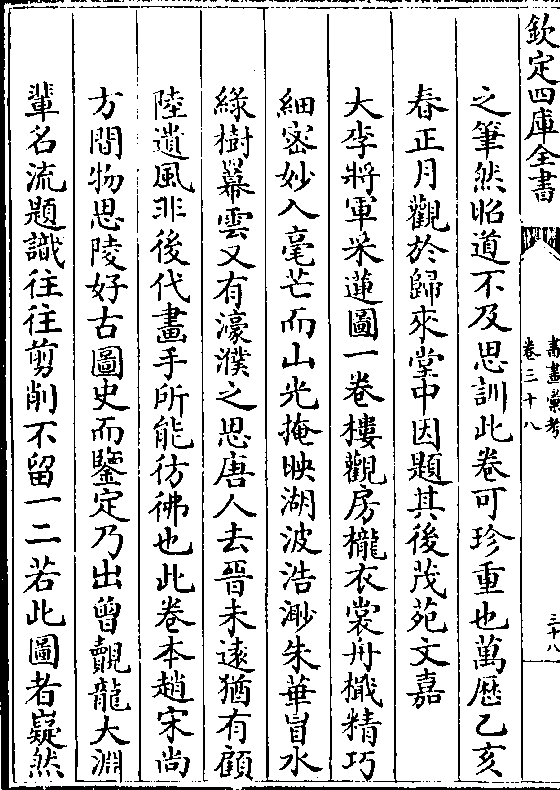 欽定四庫全書
書畫彙考
卷三十八
三十八
之筆然昭道不及思訓此卷可珍重也萬歷乙亥
春正月觀於歸來堂中因題其後茂苑文嘉
大李將軍采蓮圖一卷樓觀房櫳衣裳舟檝精巧
細宻妙入毫芒而山光掩映湖波浩渺朱華冒水
緑樹羃雲又有濠濮之思唐人去晉未逺猶有顧
陸遺風非後代畫手所能彷彿也此卷本趙宋尚
方間物思陵好古圖史而鑒定乃出曾覿龍大淵
輩名流題識往往剪削不留一二若此圖者嶷然